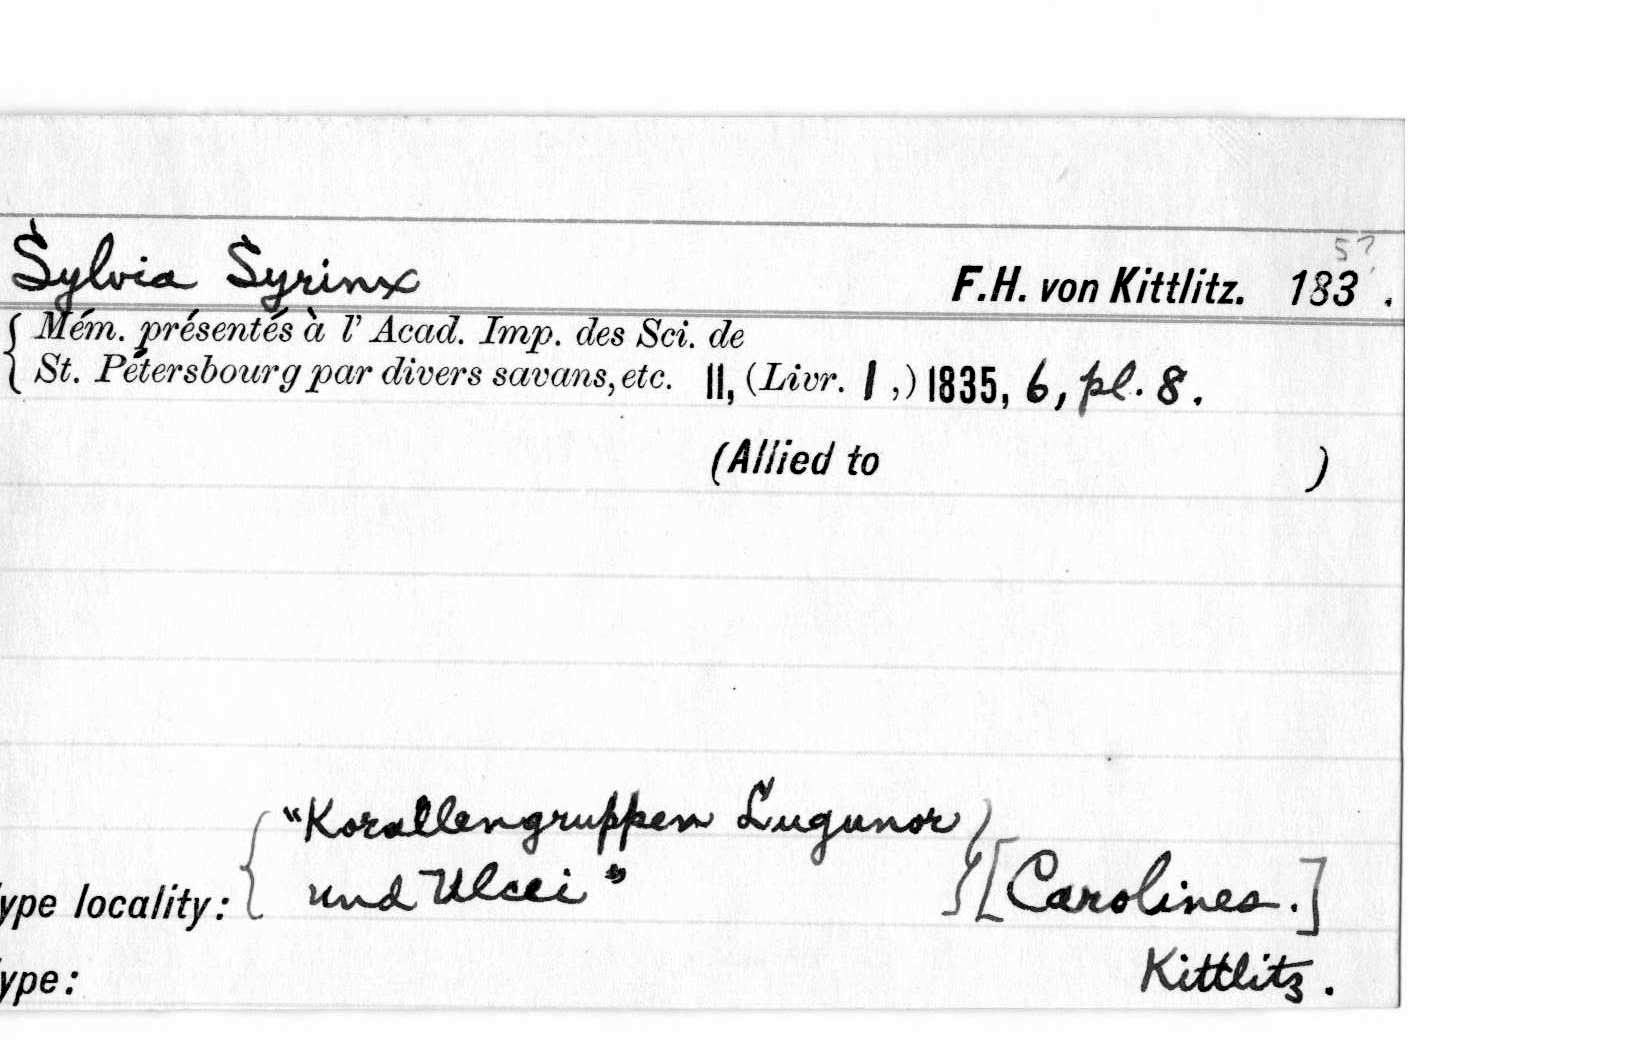 Sylvia Syrinx F.H. von Kittlitz. 183 .
5?
Mém. présentés à l' Acad. Imp. des Sci. de
St. Pétersbourg par divers savans, etc. II, (Livr. 1 ,) 1835, 6, pl. 8.
(Allied to )
"Korallengruppen Lugunor
ype locality: und Ulëei" [Carolines.]
ype: Kittlitz.